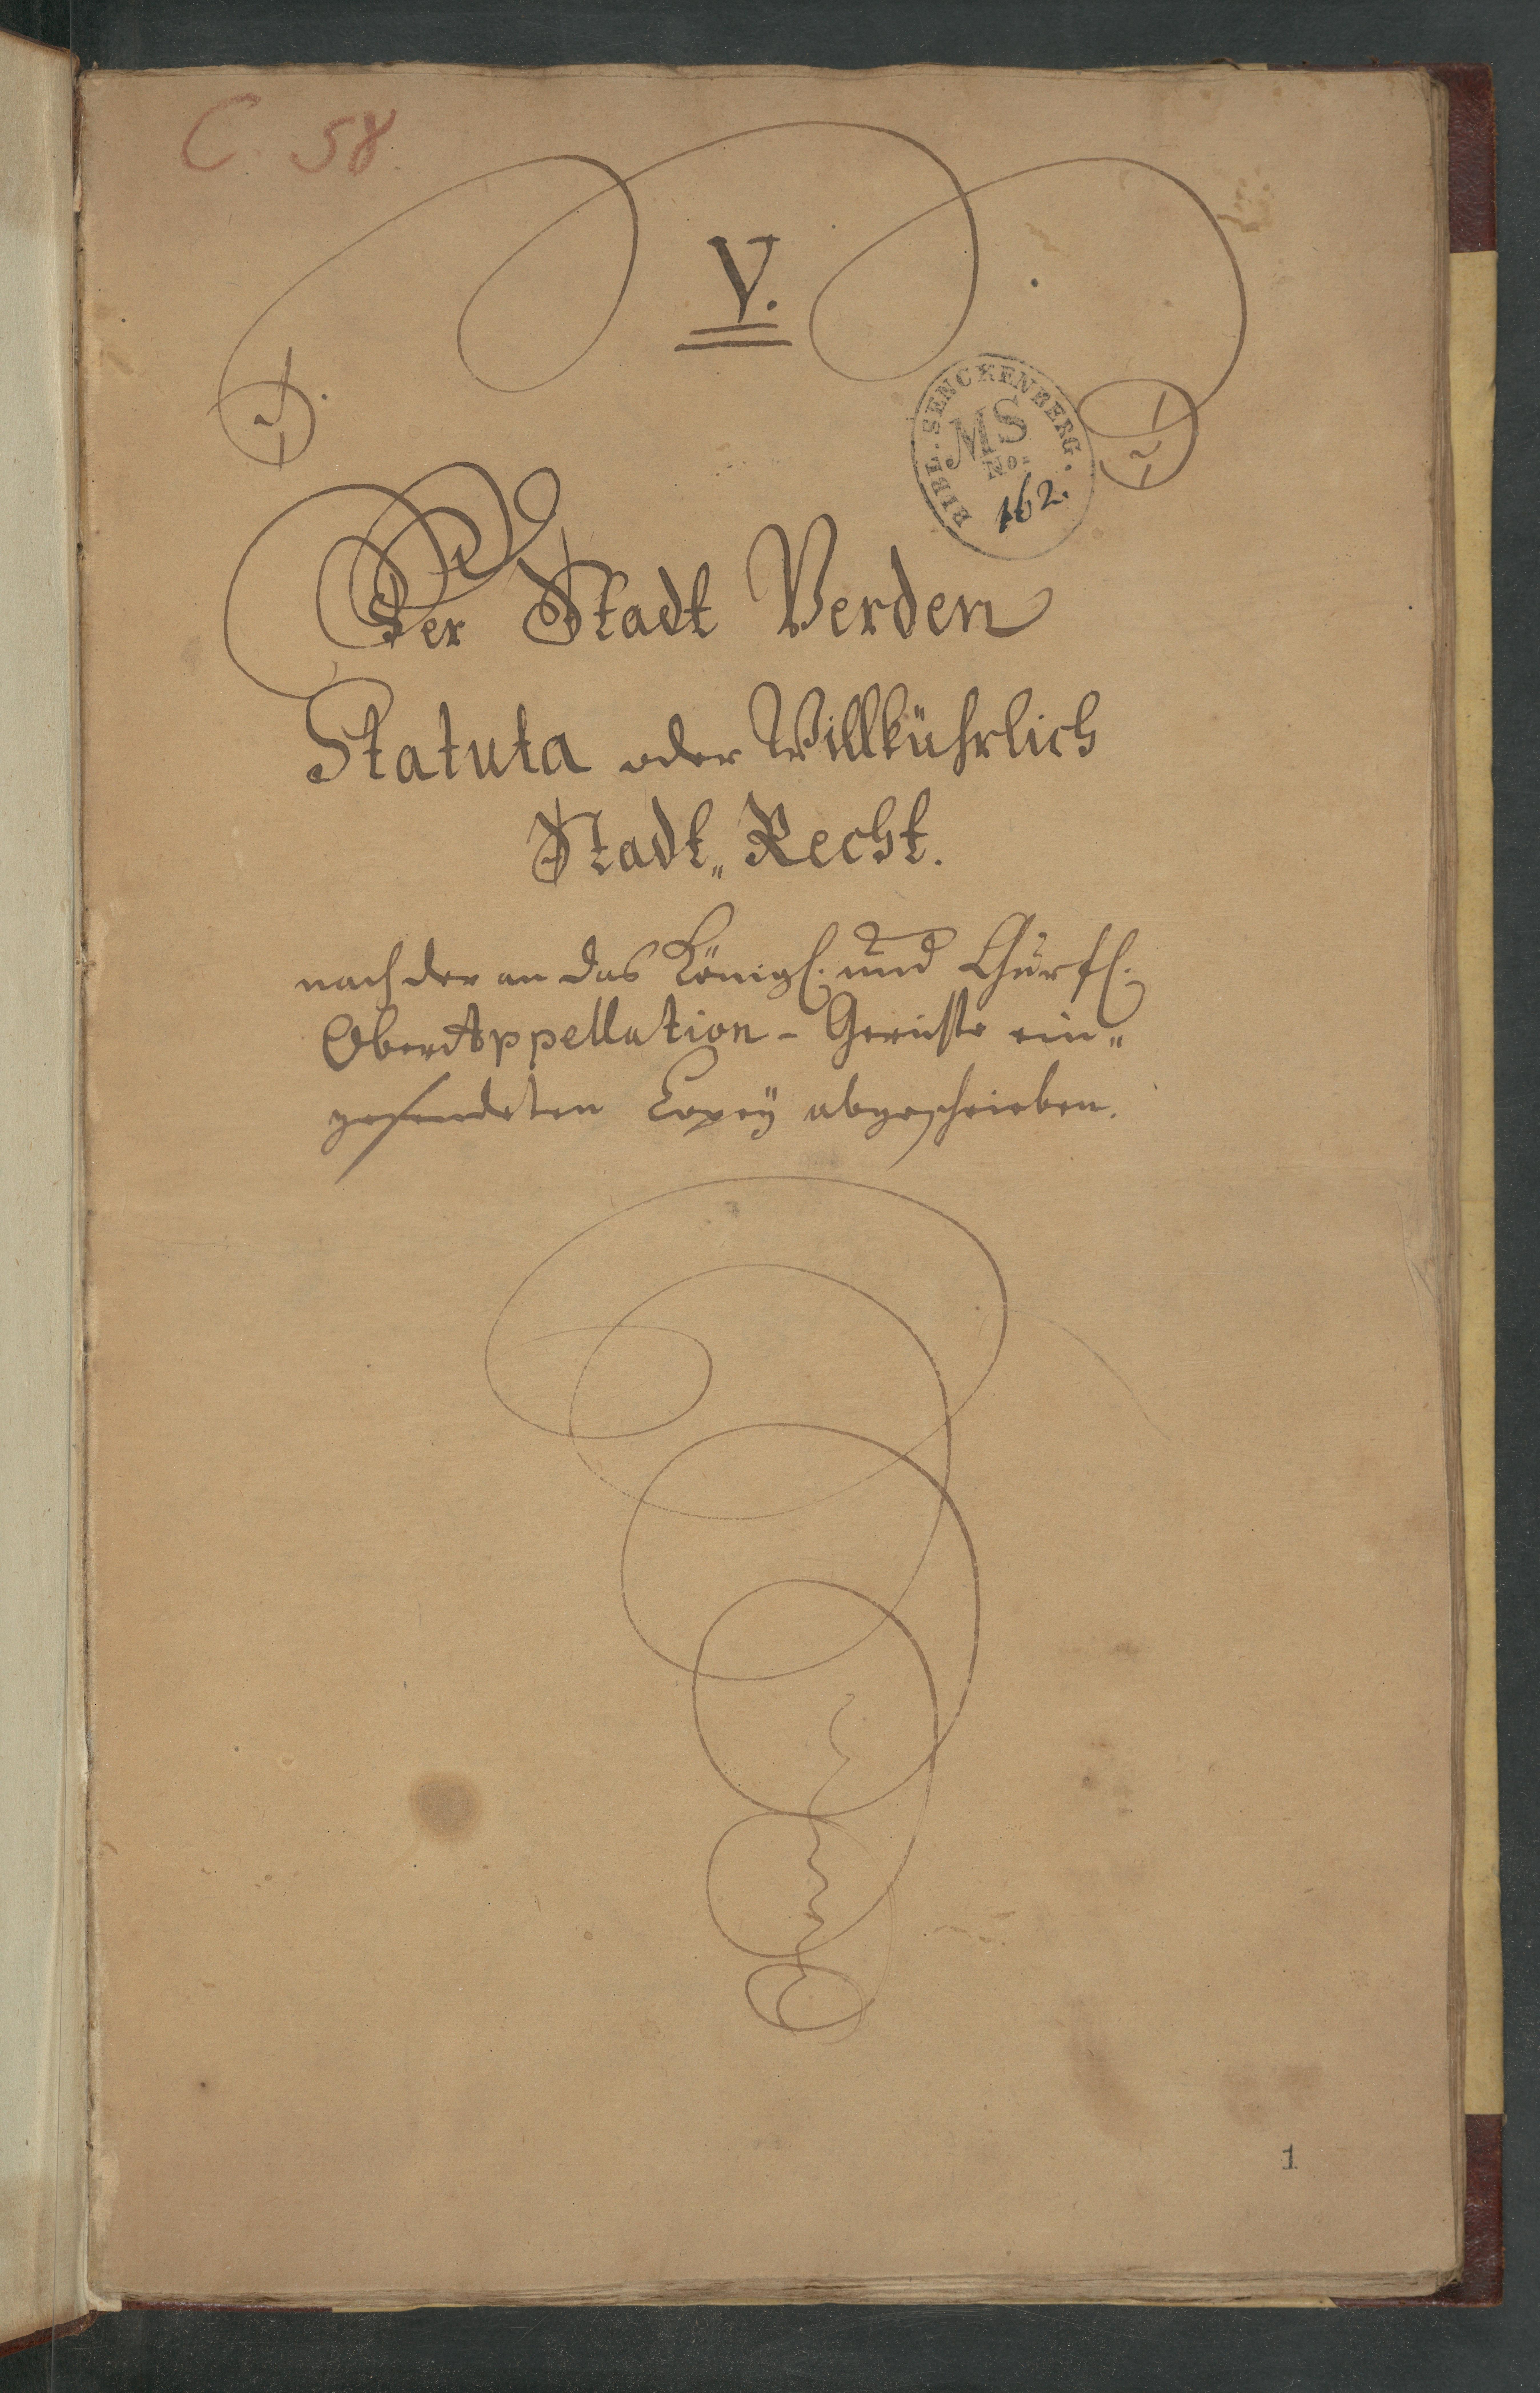 C. 58.
V.
BIBL. SENCKENBERG.
MS
No.
162.
Der Stadt Verden
Statuta oder Willkührlich
Stadt„ Recht.
nach der an das Königl. und Churfl.
OberAppellation - Gerichte ein„
gesendeten Copey abgeschrieben.
1